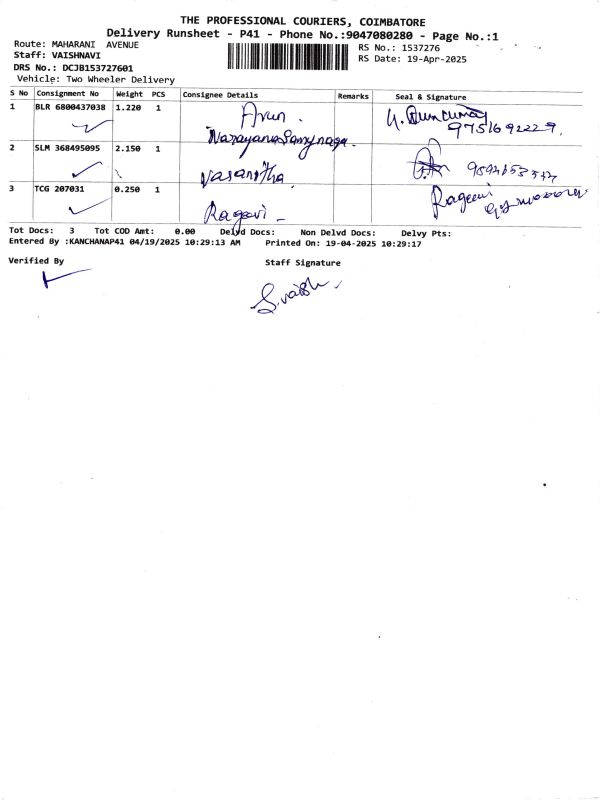 THE PROFESSIONAL COURIERS, COIMBATORE
Delivery Runsheet - P41 - Phone No.:9047080280 - Page No.:1
Route: MAHARANI AVENUE
Staff: VAISHNAVI
DRS No.: DCJB153727601
Vehicle: Two Wheeler Delivery
RS No.: 1537276
RS Date: 19-Apr-2025
S No Consignment No Weight PCS Consignee Details Remarks Seal & Signature
1 BLR 6800437038 1.220 1 Arun.
Narayanasamy naga. 9751692229.
2 SLM 368495095 2.150 1 Vasantha.
3 TCG 207031 0.250 1 Ragavi Rageevi
Tot Docs: 3 Tot COD Amt: 0.00 Delvd Docs: Non Delvd Docs: Delvy Pts:
Entered By :KANCHANAP41 04/19/2025 10:29:13 AM Printed On: 19-04-2025 10:29:17
Verified By Staff Signature
S.vaish